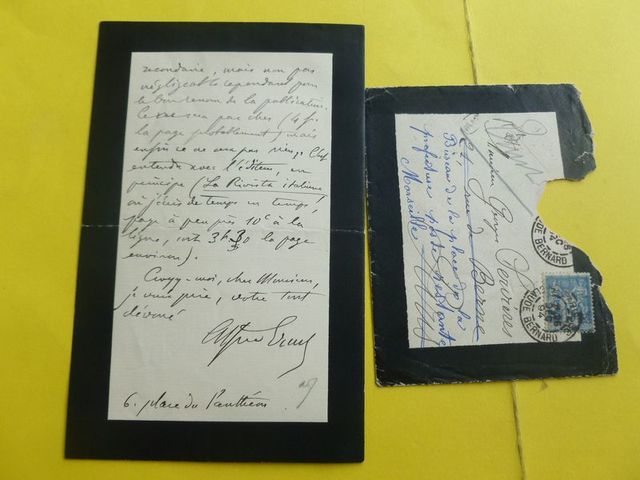 secondaire, mais non pas
négligeable cependant pour
le bon renom de la publication.
Ce sera pas cher (4 f.
la page probablement) mais
enfin ce ne sera pas rien;
entendu avec l'éditeur, en
principe (La Rivista italiana
où j'écris de temps en temps,
paye à peu près 10c à la
ligne, soit 3 la page
environ).
Croyez-moi, cher Monsieur,
je vous prie, votre tout
dévoué
Alfred Ernst
6, place du Panthéon
Monsieur Georges Servières
rue de Berne
Bureau de la place de la
préfecture poste restante
Marseille
CLAUDE BERNARD
94